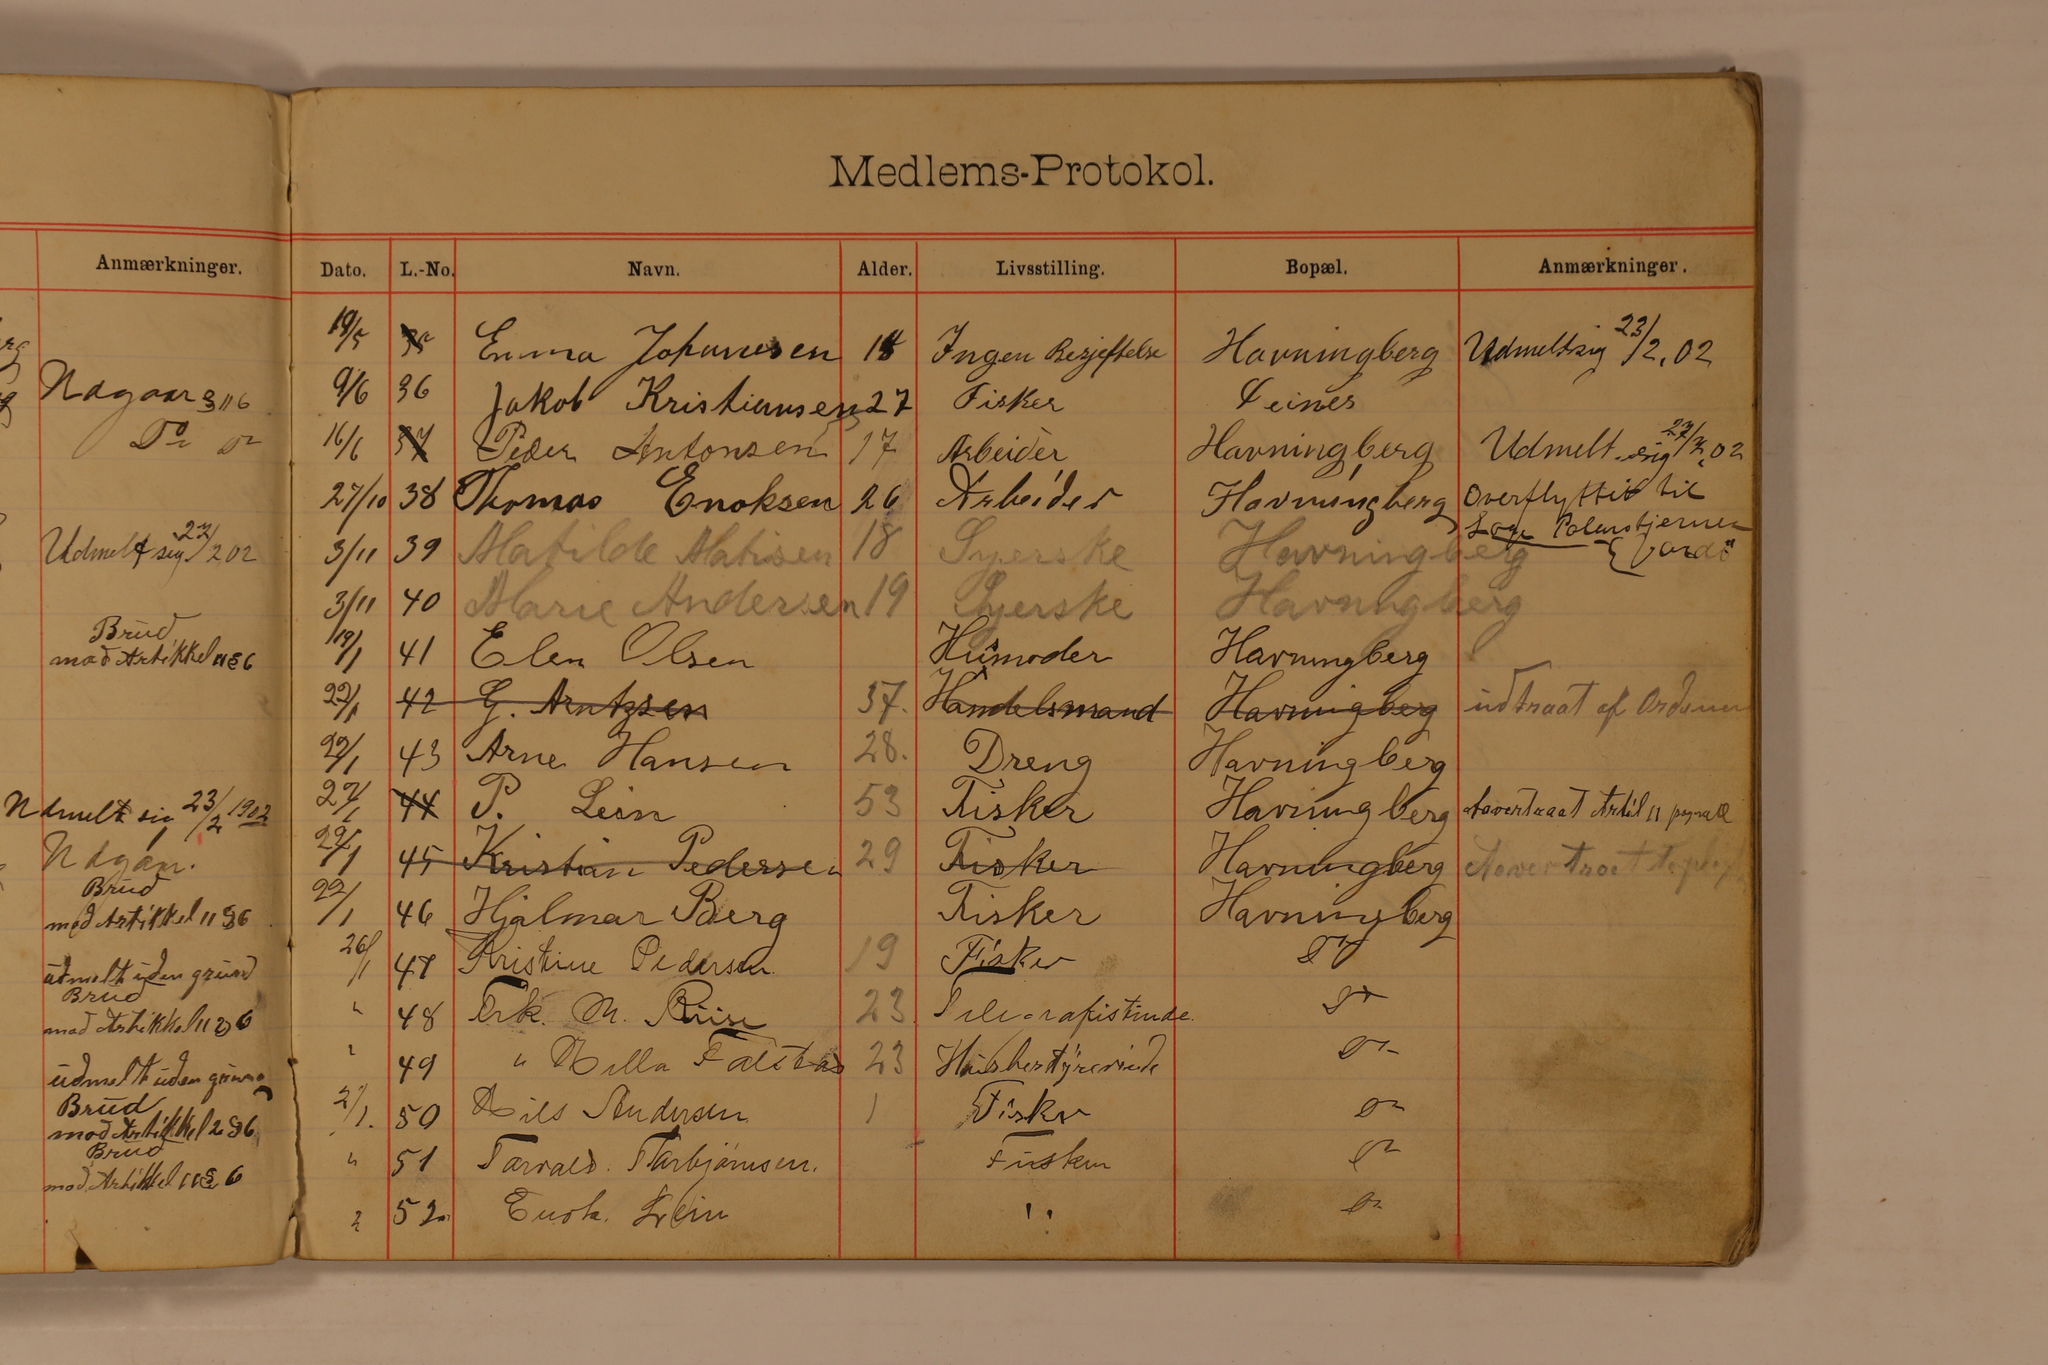 Medlems-Protokol.
Anmærkninger.
Ndgaar § 11 6
Do do
Udmelt sig 23/2 02
Brud
mod Artikkel 11 § 6
Udmelt sig 23/2 1902
Ndgan.
Brud
mod Artikkel 11 § 6
udmelt uden grund
Brud
mod Artikkel 11 § 6
udmelt uden grund
Brud
mod Artikkel 2 § 6
Brud
mod Artikkel 11 § 6
Dato. L.-No. Navn. Alder. Livsstilling. Bopæl. Anmærkninger.
19/5 35 Emma Johansen 18 Ingen Besjeftelse Havningberg Udmelt sig 23/2.02
9/6 36 Jakob Kristiansen 27 Fisker Steines
16/6 37 Peder Antonsen 17 Arbeider Havningberg Udmelt sig 02
27/10 38 Thomas Enoksen 26 Arbeider Havningberg Overflyttit til
Loge Polarstjernen
Vardö
3/11 39 Matilde Matisen 18 Syerske Havningberg
3/11 40 Marie Andersen 19 Syerske Havningberg
19/1 41 Elen Olsen Husmoder Havningberg
22/1 42 G. Arntzsen 37. Handelsmand Havningberg udtraat af Ordenen
22/1 43 Arne Hansen 28. Dreng Havningberg
22/1 44 P. Lein 53 Fisker Havningberg Aavertraat Artil 11
22/1 45 Kristian Pedersen 29 Fisker Havningberg Aavertraat
22/1 46 Hjalmar Berg Fisker Havningberg
26/1 47 Kristine Pedersen 19 Fisker Do
" 48 Frk. M. Riise 23 Telegrafistinde Do
" 49 " Falstad 23 Husbestyrerinde Do
2/1. 50 Nils Andersen 1 Fisker Do
" 51 Torvald Torbjörnsen. Fisker Do
" 52 Enok. Lein " Do